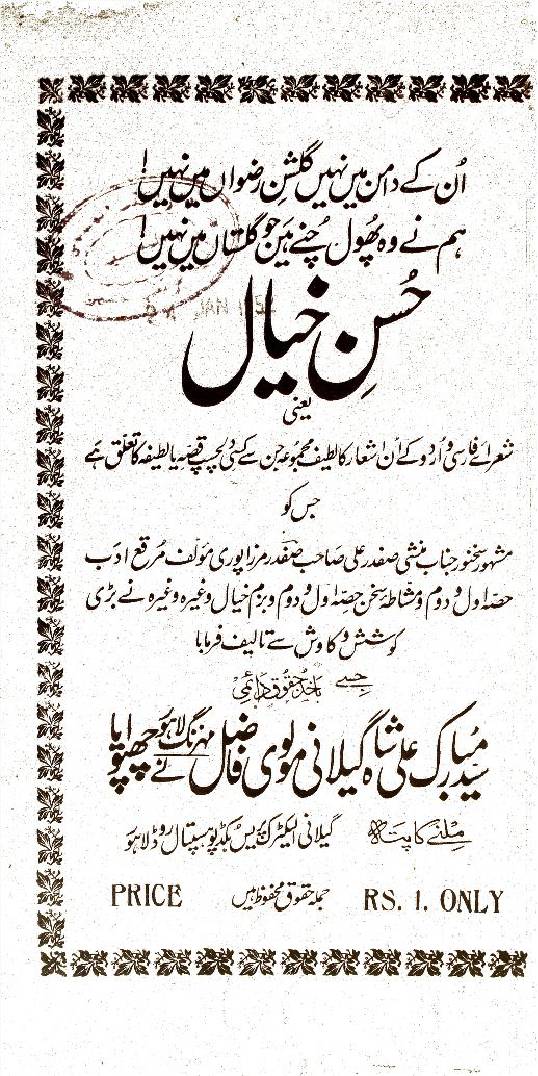 اُن کے دامن میں نہیں گلشنِ رضواں میں نہیں!
ہم نے وہ پھُول چُنے ہیں جو گلستاں میں نہیں!
JAN 195
حُسنِ خیال
یعنی
شعرائے فارسی و اُردو کے اُن اشعار کا لطیف مجموعہ جن سے کسی دلچسپ قصّہ یا لطیفہ کا تعلق ہے
جس کو
مشہور سخنور جناب منشی صفدر علی صاحب صفدر مرزا پوری مؤلف مُرقع ادب
حصّہ اول و دوم و مشاطۂ سخن حصّہ اول و دوم و بزم خیال وغیرہ وغیرہ نے بڑی
کوشش و کاوش سے تالیف فرمایا
جسے باخذ حقوق دائمی
سید مُبارک علی شاہ گیلانی مولوی فاضل مہرنگ لاہور نے چھپوایا
ملنے کا پتہ گیلانی الیکٹرک پریس بکڈپو ہسپتال روڈ لاہور
PRICE جملہ حقوق محفوظ ہیں RS. 1. ONLY